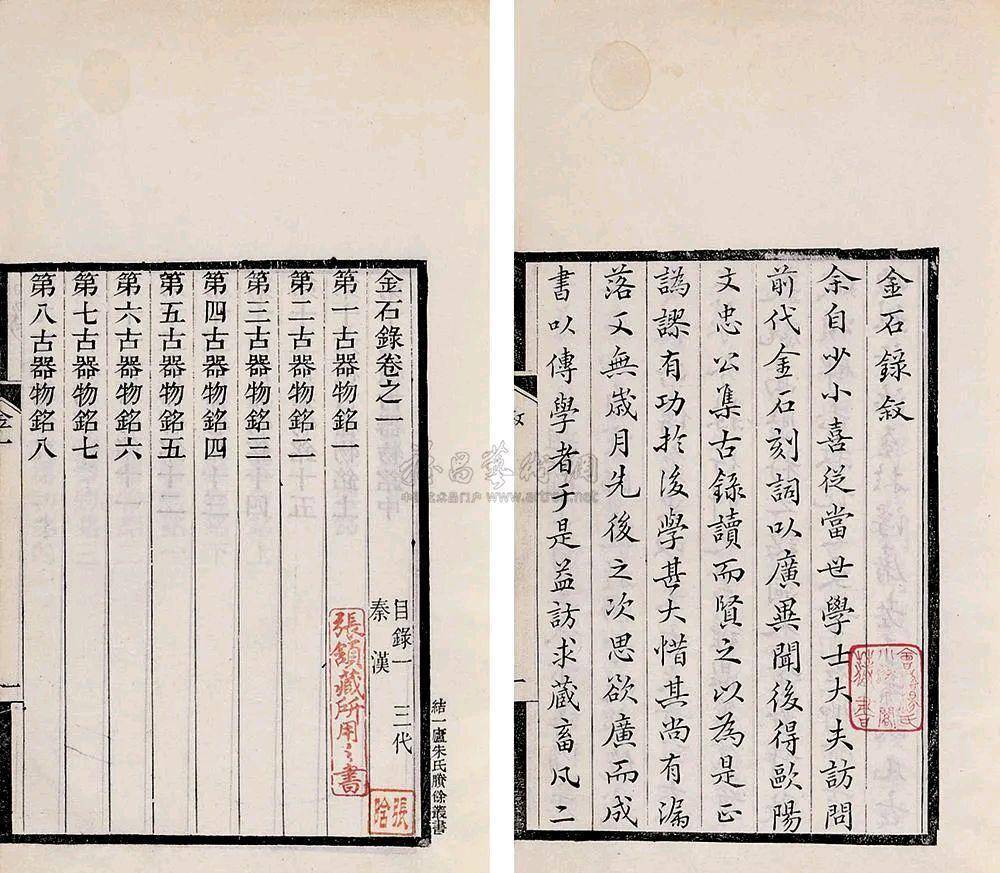 金石錄叙
余自少小喜從當世學士大夫訪問
前代金石刻詞以廣異聞後得歐陽
文忠公集古錄讀而賢之以為是正
譌謬有功於後學甚大惜其尚有漏
落又無歲月先後之次思欲廣而成
書以傳學者于是益訪求蔵畜凡二
叙
結一廬朱氏賸餘叢書
金石錄卷之一
目錄一 三代
秦 漢
第一古器物銘一
第二古器物銘二
第三古器物銘三
第四古器物銘四
第五古器物銘五
第六古器物銘六
第七古器物銘七
第八古器物銘八
金一
一
張 藏所用之書
張
雅昌藝術網
www.artron.net